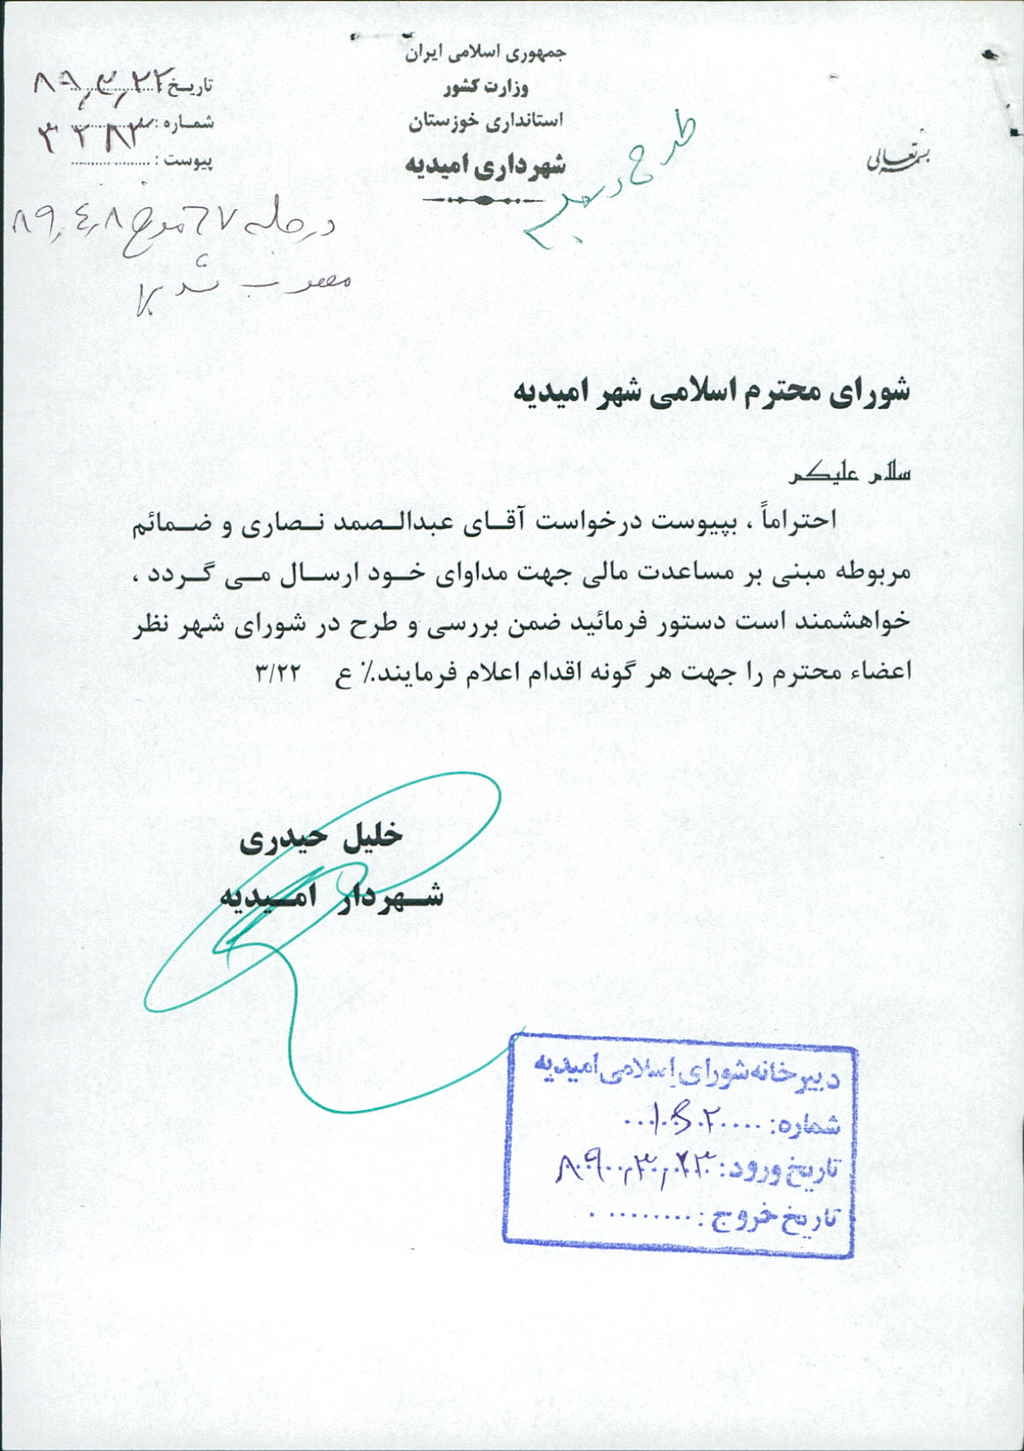 بسمه تعالی
جمهوری اسلامی ایران
وزارت کشور
استانداری خوزستان
شهرداری امیدیه
تاریخ : ۸۹/۳/۲۲
شماره : ۳۲۸۳
پیوست : ....................
طرح در جلسه
در جلسه ۶۷ مورخ ۸۹/۴/۸
مصوب شد
شورای محترم اسلامی شهر امیدیه
سلام علیکم
احتراماً ، بپیوست درخواست آقای عبدالصمد نصاری و ضمائم
مربوطه مبنی بر مساعدت مالی جهت مداوای خود ارسال می گردد ،
خواهشمند است دستور فرمائید ضمن بررسی و طرح در شورای شهر نظر
اعضاء محترم را جهت هر گونه اقدام اعلام فرمایند./ ع ۳/۲۲
خلیل حیدری
شهردار امیدیه
دبیرخانه شورای اسلامی امیدیه
شماره: ۱۰۶۰۲
تاریخ ورود: ۸۹/۳/۲۳
تاریخ خروج : ..........